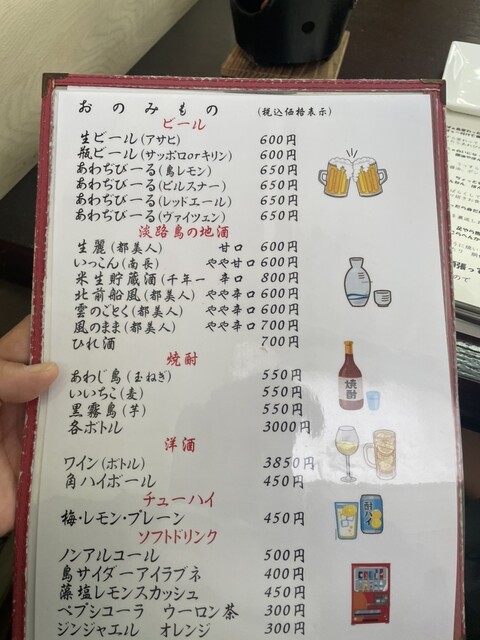 おのみもの (税込価格表示)
ビール
生ビール(アサヒ) 600円
瓶ビール(サッポロorキリン) 600円
あわぢびーる(島レモン) 650円
あわぢびーる(ピルスナー) 650円
あわぢびーる(レッドエール) 650円
あわぢびーる(ヴァイツェン) 650円
淡路島の地酒
生麗(都美人) 甘口 600円
いっこん(南長) やや甘口 600円
米生貯蔵酒(千年一 辛口 800円
北前船風(都美人) やや辛口 600円
雲のごとく(都美人) やや辛口 600円
風のまま(都美人) やや辛口 700円
ひれ酒 700円
焼酎
あわじ島(玉ねぎ) 550円
いいちこ(麦) 550円
黒霧島(芋) 550円
各ボトル 3000円
焼酎
洋酒
ワイン(ボトル) 3850円
角ハイボール 450円
チューハイ
梅・レモン・プレーン 450円
酎ハイ
ソフトドリンク
ノンアルコール 500円
島サイダーアイラブネ 400円
藻塩レモンスカッシュ 450円
ペプシコーラ ウーロン茶 300円
ジンジャエル オレンジ 300円